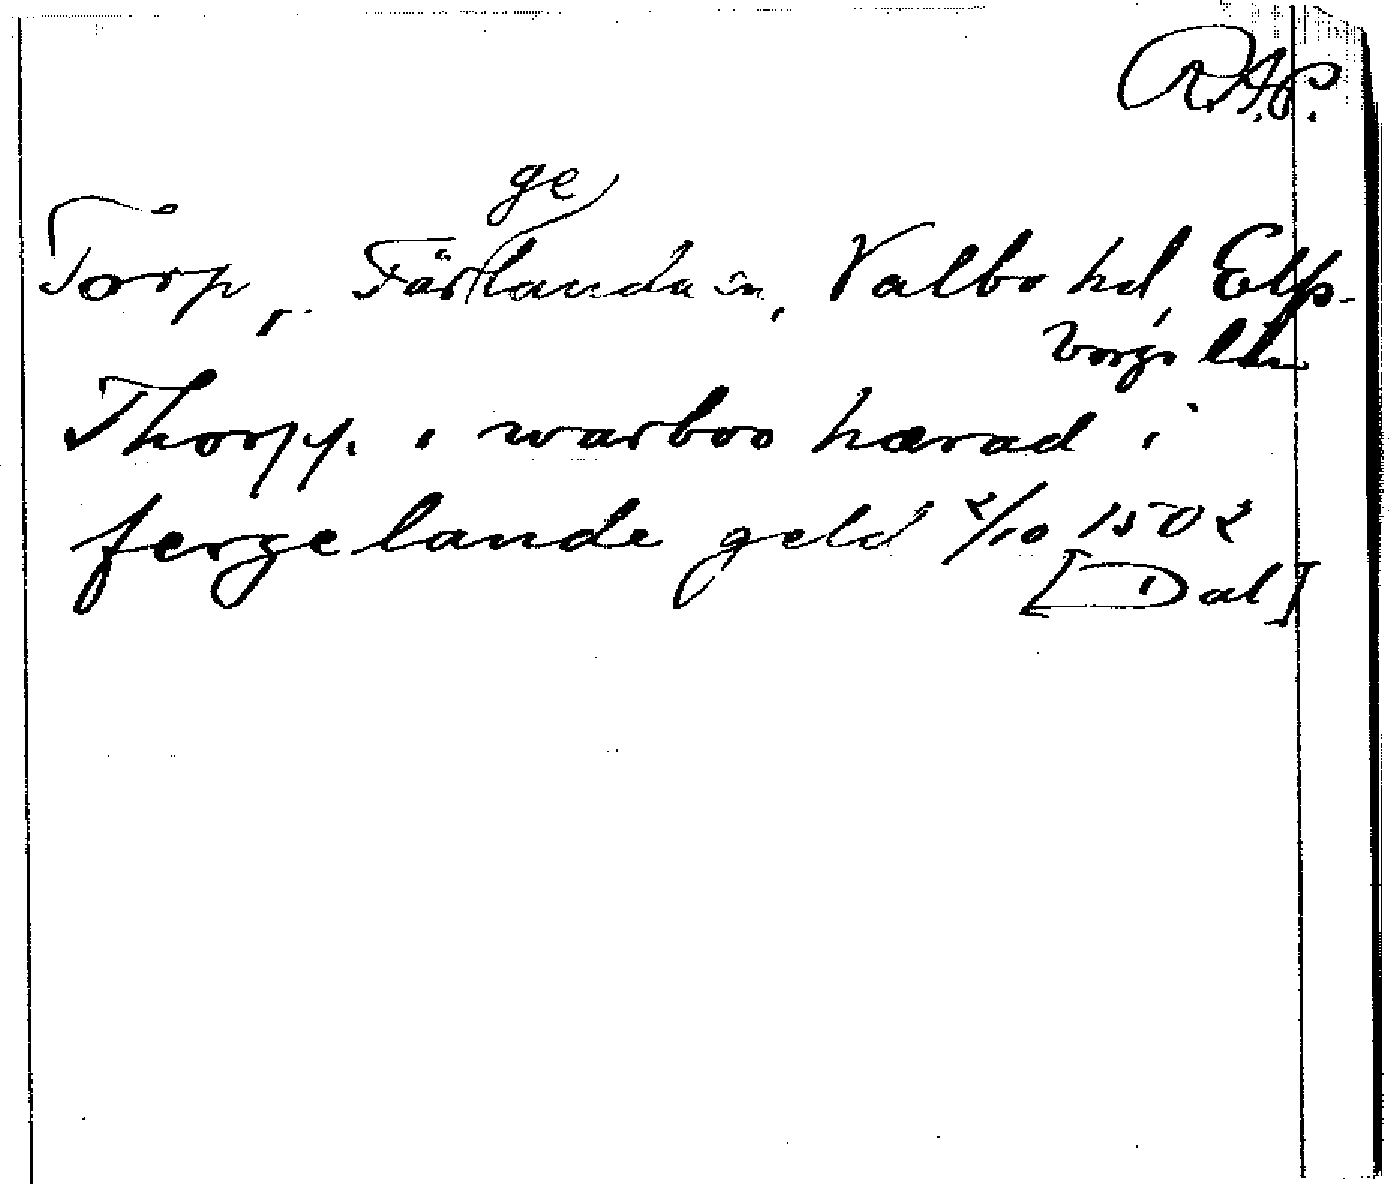 R.A.P.
Torp, Färgelanda sn, Valbo hd, Elfs-
borgs län
Thorpp. i warboo hærad i
fergelande geld 2/10 1502
[Dal]